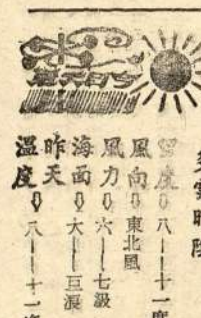 雲時陰
溫度⇩八——十一度
風向⇩東北風
風力⇩六——七級
海面⇩大——巨浪
昨天
溫度⇩八——十一度